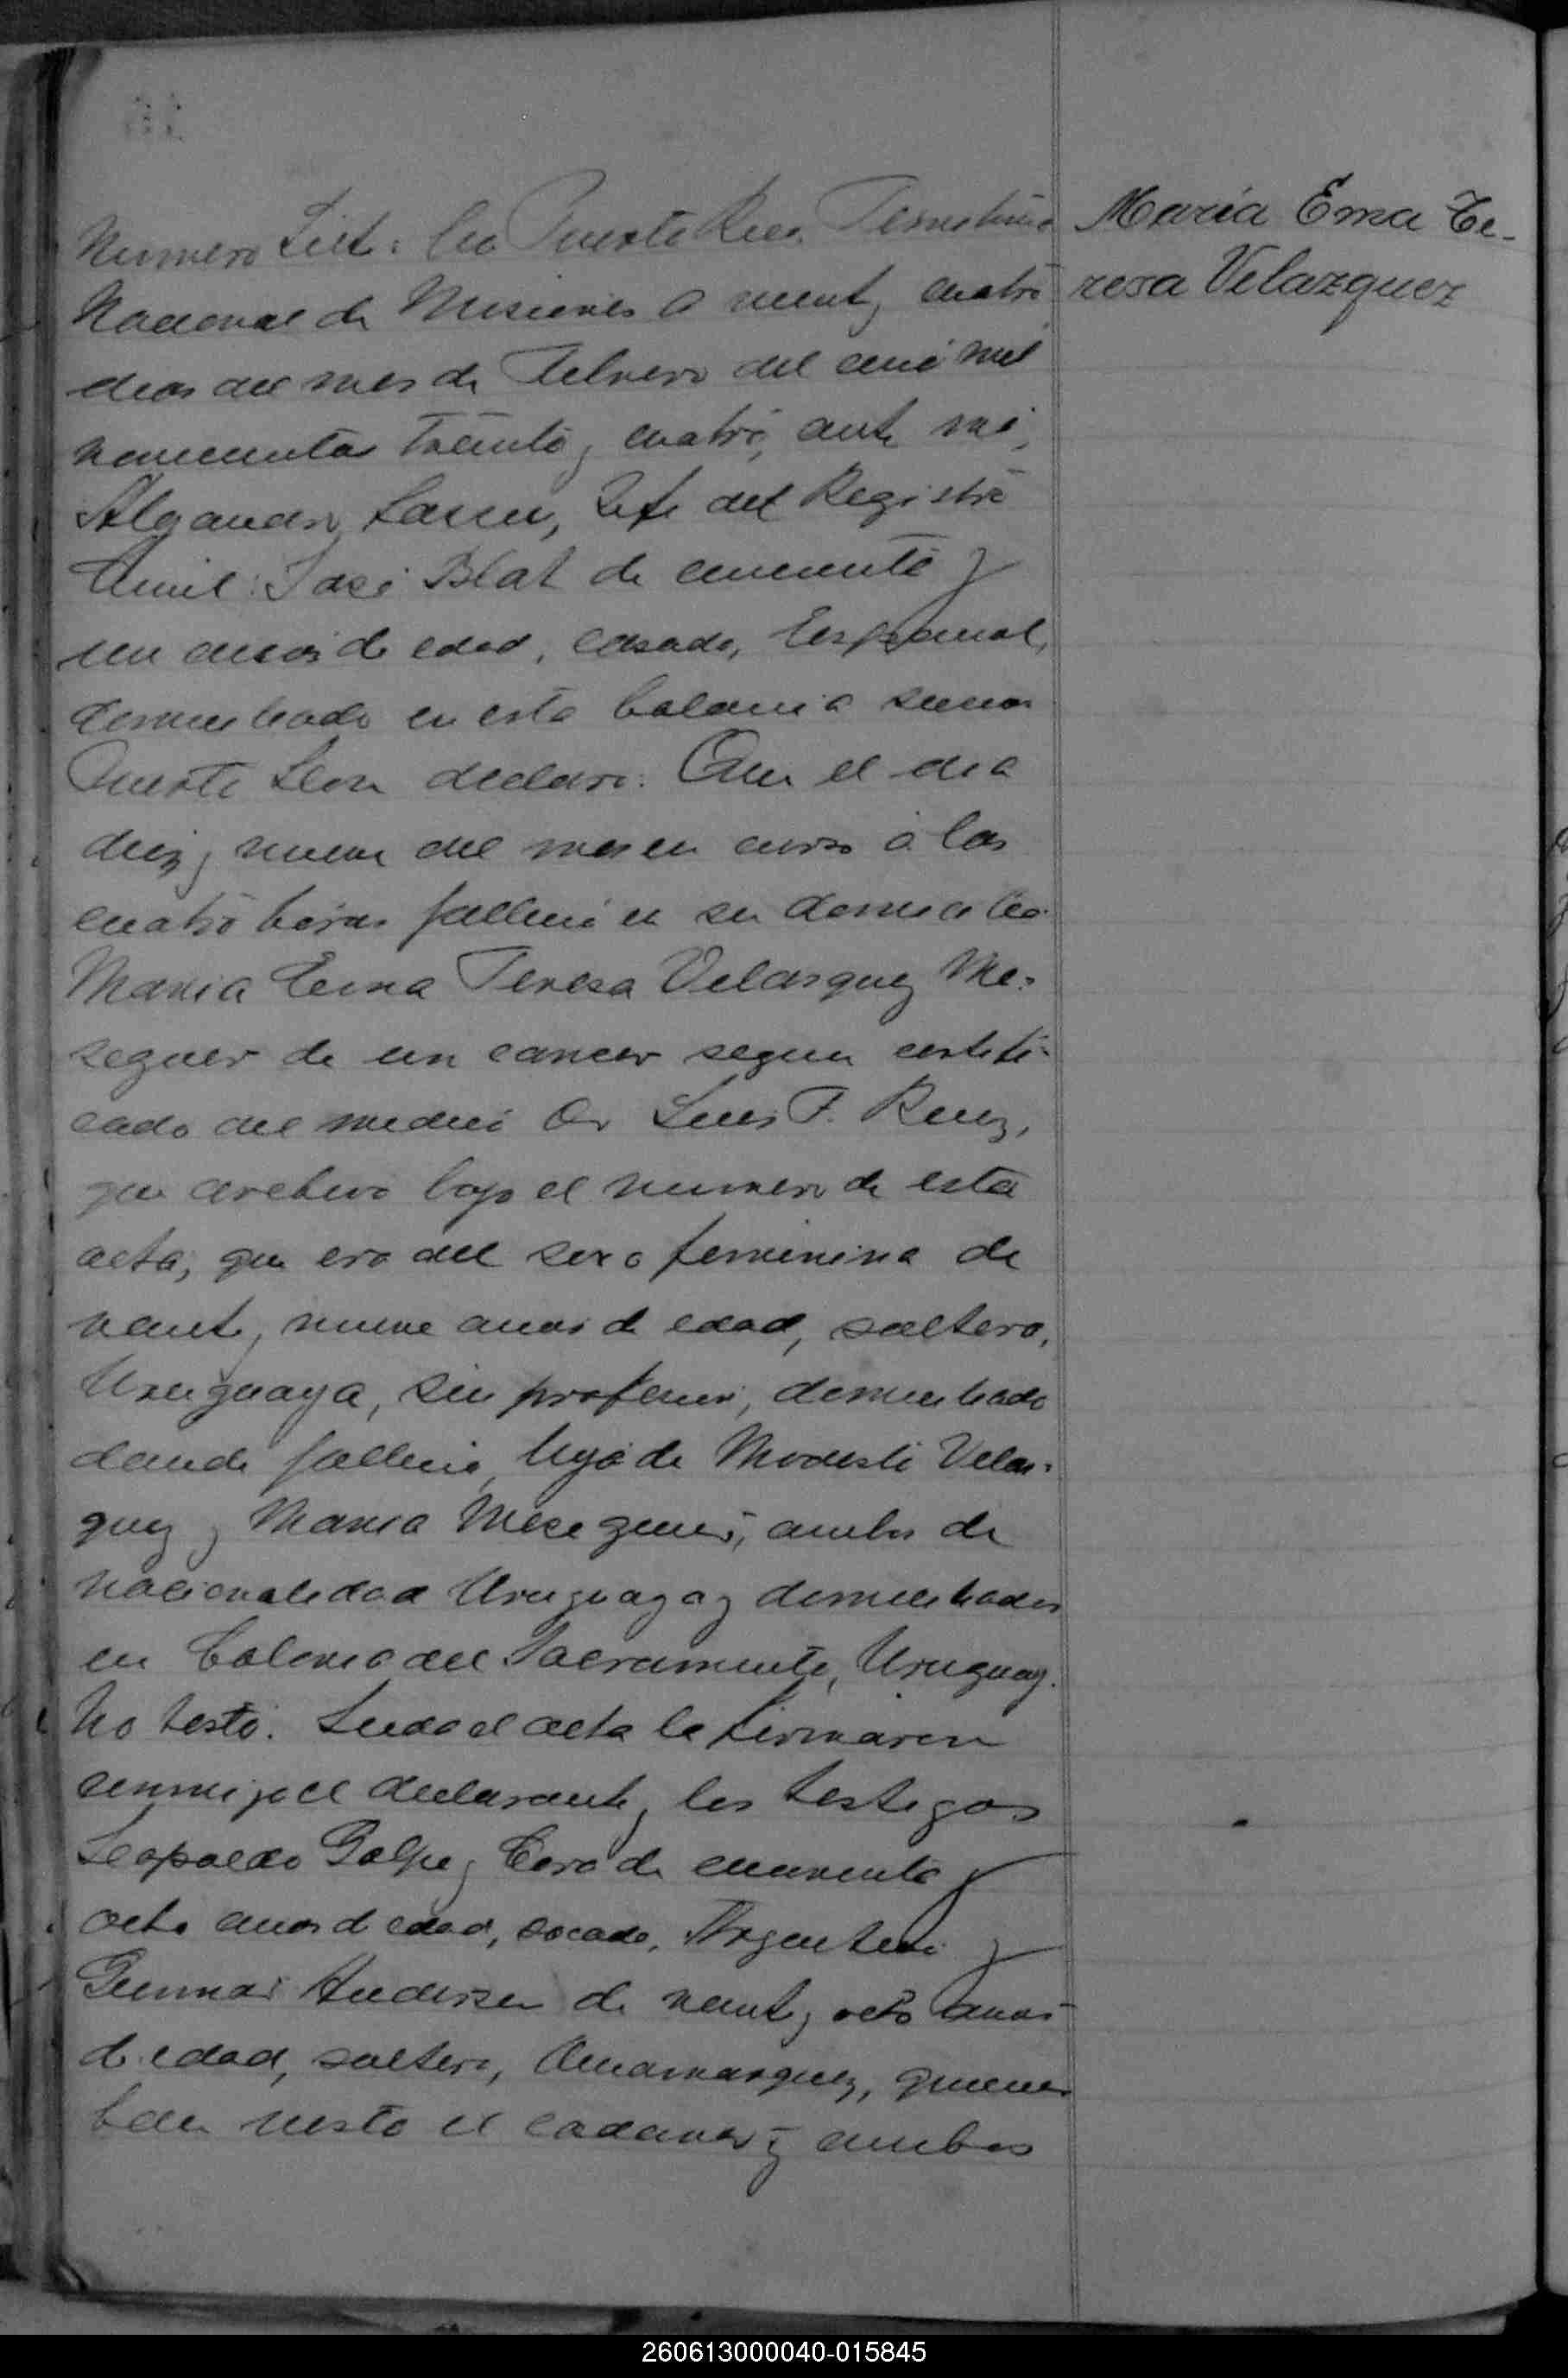 Numero Siete: En Puerto Rico, Territorio
Nacional de Misiones a veinte y cuatro
dias del mes de Febrero del año mil
novecientos treinta y cuatro, ante mi,
Alejandro Jefe del Registro
Civil: José Blat de cincuenta y
un años de edad, casado, Español,
domiciliado en esta Colonia
Puerto Leon declaro: Que el dia
diez y nueve del mes en curso a las
cuatro horas falleció en su domicilio
Maria Ema Teresa Velasquez Me-
seguer de un cancer segun certifi-
cado del medico Dr Luis F. Ruiz,
que archivo bajo el numero de esta
acta, que era del sexo feminina de
veinte y nueve anos de edad, soltera,
Uruguaya, sin profesion, domiciliada
donde falleció, hija de Modesto Velas-
quez y Maria Meseguer, ambos de
nacionalidad Uruguaya y domiciliados
en Colonia del Sacramento, Uruguay.
No testó. Leida el acta la firmaron
conmigo el declarante y los testigos
Leopoldo de cuarenta y
ocho anos de edad, casado, Argentino y
Gunnar Andersen de veinte y ocho anos
de edad, soltero, Dinamarques, quienes
han visto el cadaver y ambos
María Ema Te-
resa Velazquez
260613000040-015845